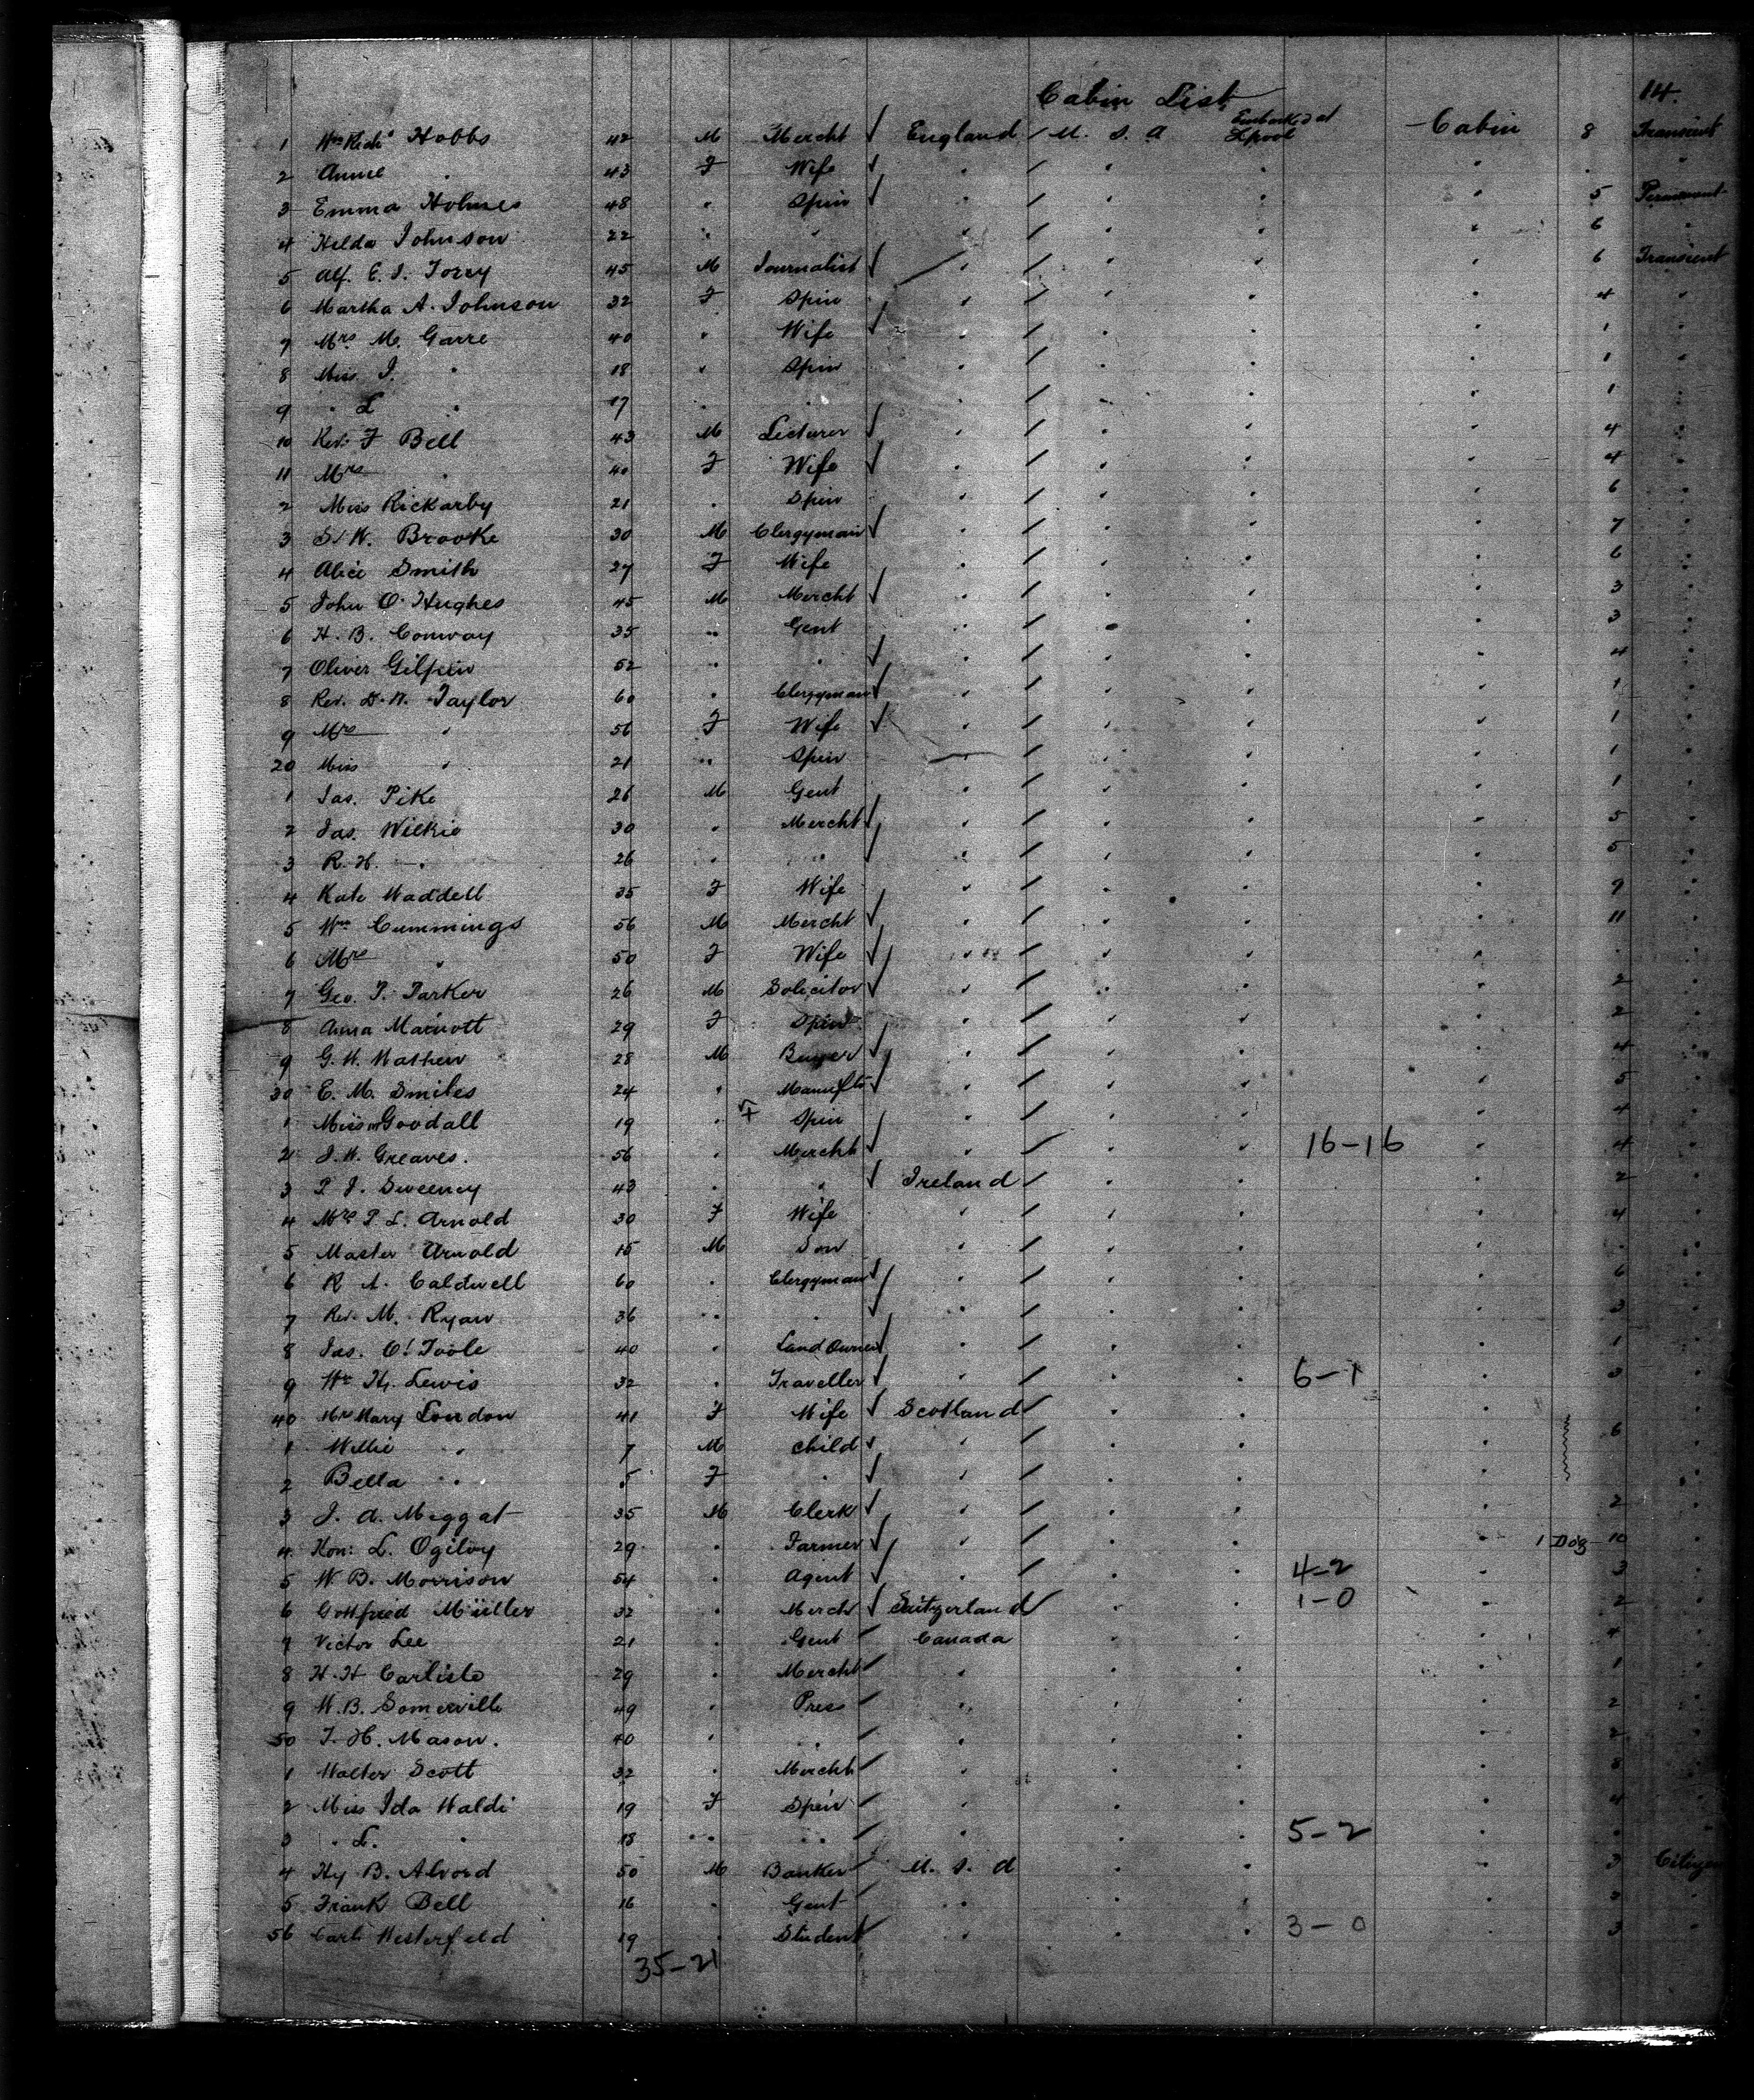 Cabin List 14.
1 Wm Richd Hobbs 42 M Mercht ✓ England / U. S. A Embarked at Lpool - Cabin 8 Transient
2 Annie " 43 F Wife ✓ " / " " " " "
3 Emma Holmes 48 " Spin ✓ " / " " " 5 Permanent
4 Hilda Johnson 22 " " " / " " " 6 "
5 Alf. E. J. 45 M Journalist ✓ " / " " " 6 Transient
6 Martha A. Johnson 32 F Spin " / " " " 4 "
7 Mrs M. Garre 40 " Wife ✓ " / " " " 1 "
8 Miss J. " 18 " Spin " / " " " 1 "
9 " L " 17 " " " / " " " 1 "
10 Rev. F Bell 43 M Lecturer ✓ " / " " " 4 "
11 Mrs " 40 F Wife ✓ " / " " " 4 "
2 Miss Rickarby 21 " Spin " / " " " 6 "
3 S. W. Brooke 30 M Clergyman ✓ " / " " " 7 "
4 Alice Smith 27 F Wife " / " " " 6 "
5 John O. Hughes 45 M Mercht ✓ " / " " " 3 "
6 H. B. Conway 35 " Gent " / " " " 3 "
7 Oliver Gilpin 52 " " ✓ " / " " " 4 "
8 Rev. D. W. Taylor 60 " Clergyman ✓ " / " " " 1 "
9 Mrs " 56 F Wife ✓ " / " " " 1 "
20 Miss " 21 " Spin " / " " " 1 "
1 Jas. Pike 26 M Gent " / " " " 1 "
2 Jas. Wilkie 30 " Mercht ✓ " / " " " 5 "
3 R. H. " 26 " " ✓ " / " " " 5 "
4 Kate Waddell 35 F Wife " / " " " 9 "
5 Wm Cummings 56 M Mercht ✓ " / " " " 11 "
6 Mrs " 50 F Wife ✓ " / " " " " "
7 Geo. T. Parker 26 M Solicitor ✓ " / " " " 2 "
8 Anna Marriott 29 F Spin " / " " " 2 "
9 G. W. Mathew 28 M Buyer ✓ " / " " " 4 "
30 E. M. Smiles 24 " Manuftr ✓ " / " " " 5 "
1 Miss Goodall 19 " F Spin " / " " " 4 "
2 J. W. Greaves. 56 " Mercht ✓ " / " " 16-16 " 4 "
3 P J. Sweeney 43 " " ✓ Ireland / " " " 2 "
4 Mrs P L. Arnold 30 F Wife " / " " " 4 "
5 Master Arnold 15 M Son " / " " " " "
6 R A. Caldwell 60 " Clergyman ✓ " / " " " 6 "
7 Rev. M. Ryan 36 " " ✓ " / " " " 3 "
8 Jas. O'Toole 40 " Land Owner ✓ " / " " " 1 "
9 H. Lewis 32 " Traveller ✓ " / " " 6-1 " 3 "
40 Mrs Mary London 41 F Wife ✓ Scotland / " " "
1 Willie " 7 M child ✓ " / " " " 6 "
2 Bella " 5 F " ✓ " / " " " "
3 J. A. Meggat 35 M Clerk ✓ " / " " " 2 "
4 Hon: L. Ogilvy 29 " Farmer ✓ " / " " " 1 Dog 10 "
5 W. B. Morrison 54 " Agent ✓ " / " " 4-2 " 3 "
6 Gottfried Müller 32 " Mercht ✓ Switzerland / " " 1-0 " 2 "
7 Victor Lee 21 " Gent / Canada " " " 4 "
8 H. H Carlisle 29 " Mercht / " " " " 1 "
9 W. B. Somerville 49 " Press / " " " " 2 "
50 T. H. Mason. 40 " " / " " " " 2 "
1 Walter Scott 32 " Mercht / " " " " 8 "
2 Miss Ida Waldi 19 F Spin / " " " " 4 "
3 " L. " 18 " " / " " " 5-2 " " "
4 Hy B. Alvord 50 M Banker / U. S. A " " " 3 Citizen
5 Frank Bell 16 " Gent / " " " " 3 "
56 Carl Westerfeld 19 " Student / " " " 3-0 " 3 "
35-21